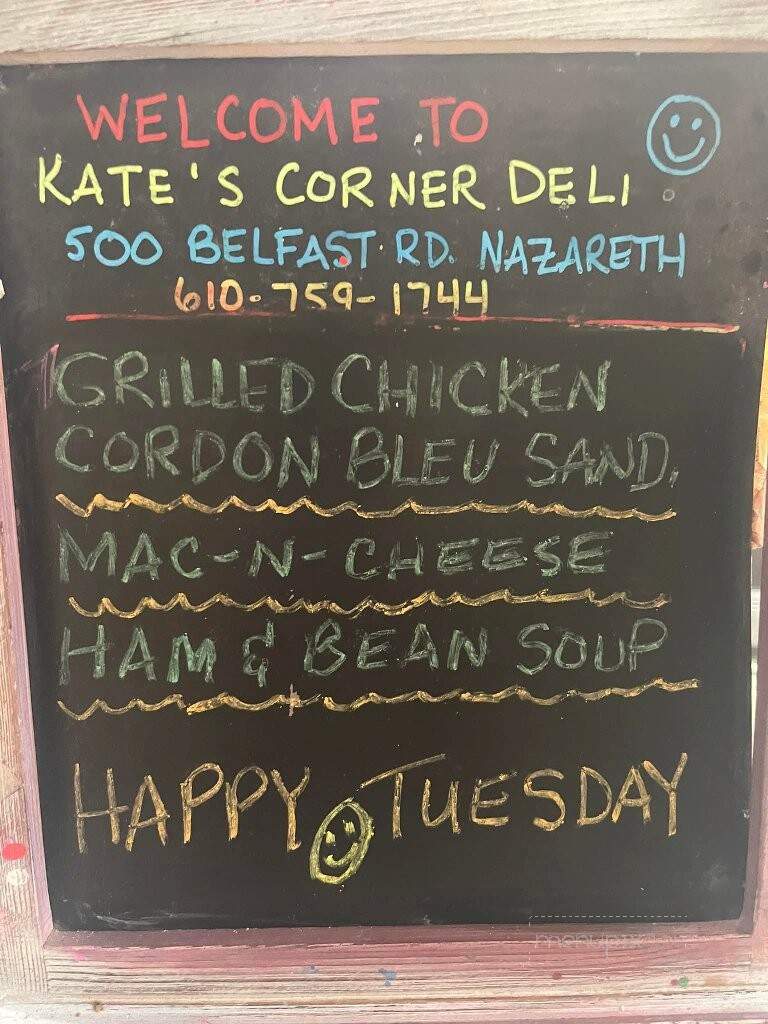 WELCOME TO
KATE'S CORNER DELI
500 BELFAST RD. NAZARETH
610-759-1744
GRILLED CHICKEN
CORDON BLEU SAND.
MAC-N-CHEESE
HAM & BEAN SOUP
HAPPY TUESDAY